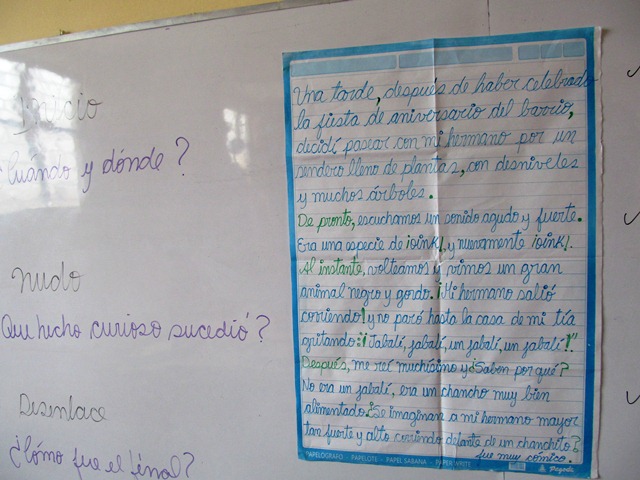 inicio
Cuándo y dónde?
Nudo
Que hecho curioso sucedió?
Desenlace
¿Cómo fue el final?
Una tarde, después de haber celebrado
la fiesta de aniversario del barrio,
decidí pasear con mi hermano por un
sendero lleno de plantas, con desniveles
y muchos árboles.
De pronto, escuchamos un sonido agudo y fuerte.
Era una especie de ¡oink!, y nuevamente ¡oink!.
Al instante, volteamos y vimos un gran
animal negro y gordo. ¡Mi hermano salió
corriendo! y no paró hasta la casa de mi tía
gritando: ¡Jabalí, jabalí, un jabalí, un jabalí!"
Después, me reí muchísimo y ¿Saben por qué?
No era un jabalí, era un chancho muy bien
alimentado. ¿Se imaginan a mi hermano mayor
tan fuerte y alto corriendo delante de un chanchito?
fue muy cómico.
PAPELÓGRAFO - PAPELOTE - PAPEL SABANA - PAPER WRITE
Pagoda